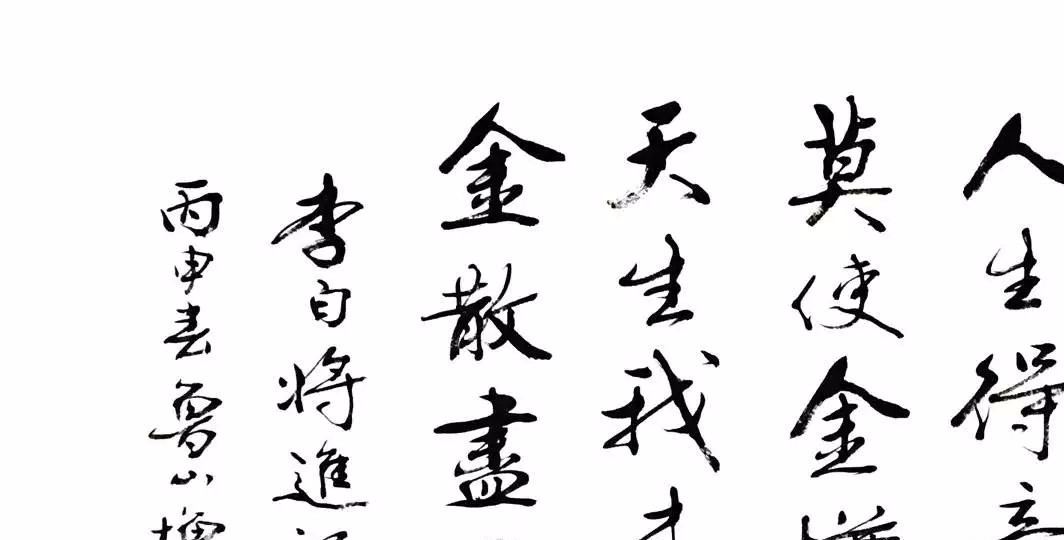 人生得意
莫使金
天生我
金散盡
李白將進
丙申春魯山